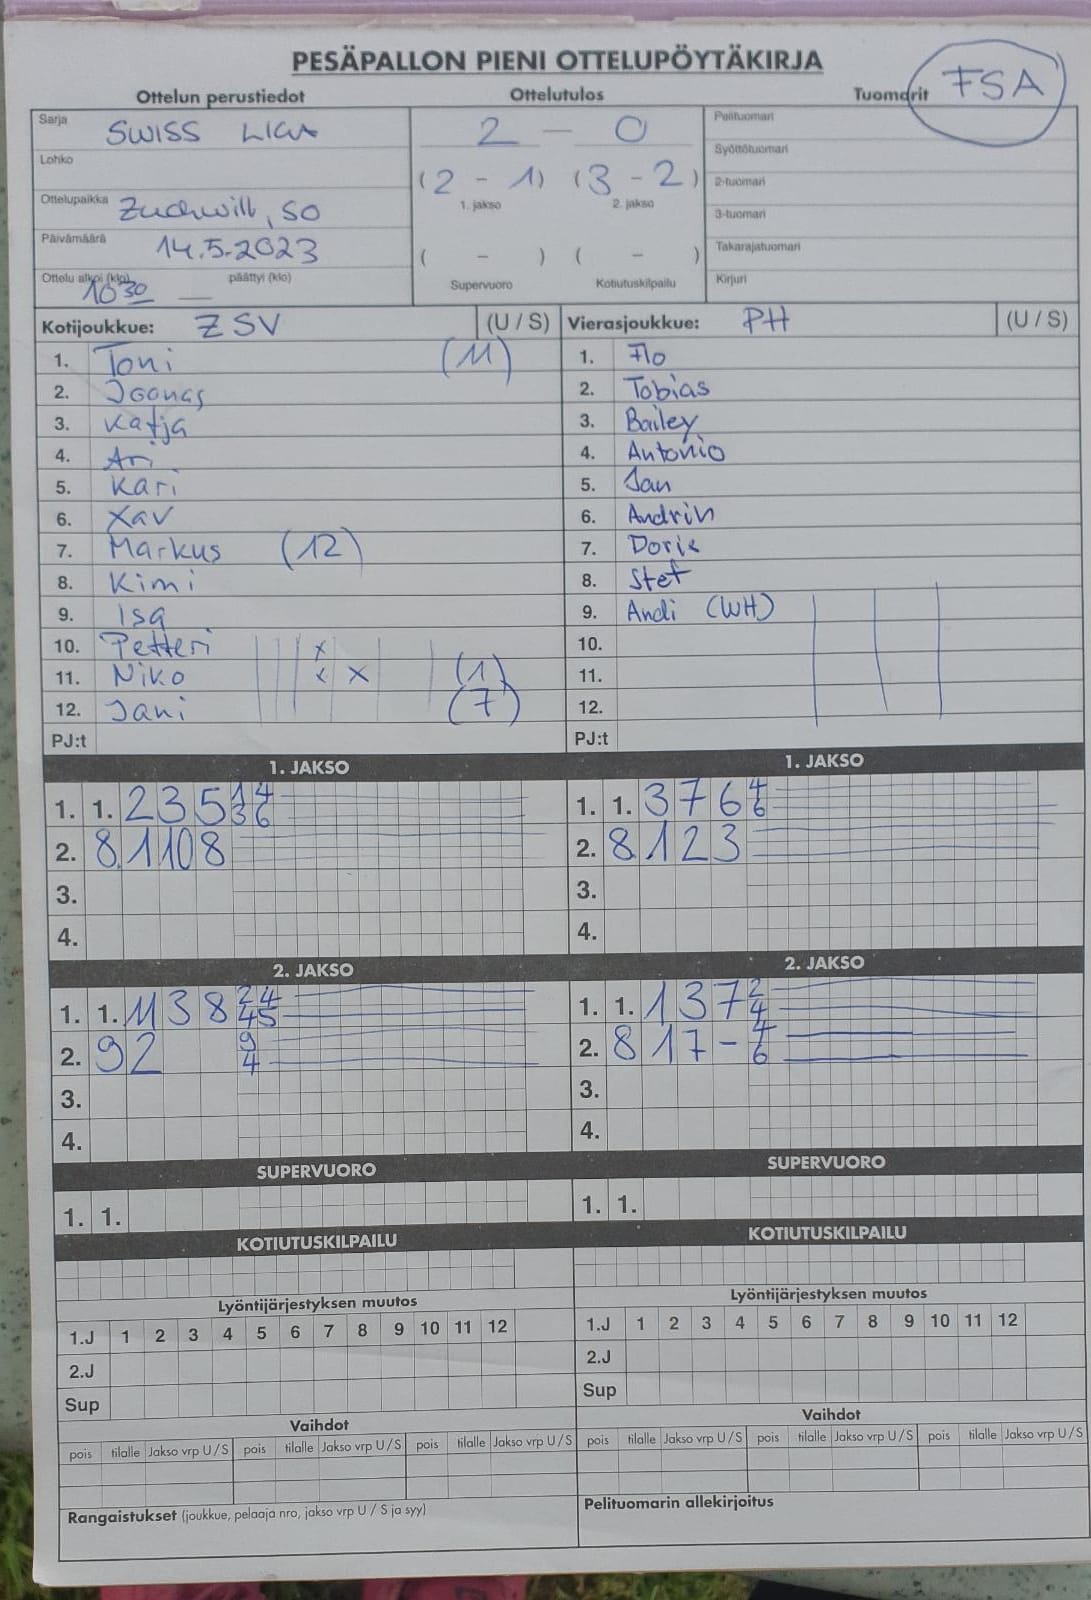 PESÄPALLON PIENI OTTELUPÖYTÄKIRJA
Ottelun perustiedot Ottelutulos Tuomarit FSA
Sarja SWISS LIGA 2 - 0 Pelituomari
Lohko (2 - 1) (3 - 2) Syöttötuomari
1. jakso 2. jakso 2-tuomari
Ottelupaikka Zuchwill, SO 3-tuomari
Päivämäärä 14.5.2023 ( - ) ( - ) Takarajatuomari
Ottelu alkoi (klo) 10 30 päättyi (klo) — Supervuoro Kotiutuskilpailu Kirjuri
Kotijoukkue: ZSV (U / S) Vierasjoukkue: PH (U / S)
1. Toni (11) 1. Flo
2. Joonas 2. Tobias
3. Katja 3. Bailey
4. Ari 4. Antonio
5. Kari 5. Jan
6. Xav 6. Andrin
7. Markus (12) 7. Doris
8. Kimi 8. Stef
9. Isa 9. Andi (WH)
10. Petteri x 10.
11. Niko x x (1) 11.
12. Jani (7) 12.
PJ:t PJ:t
1. JAKSO 1. JAKSO
1. 1. 2 3 5 14 36 1. 1. 3 7 6 4 6
2. 8 1 10 8 2. 8 1 2 3
3. 3.
4. 4.
2. JAKSO 2. JAKSO
1. 1. 11 3 8 24 45 1. 1. 1 3 7 2 4
2. 9 2 9 4 2. 8 1 7 - 4 6
3. 3.
4. 4.
SUPERVUORO SUPERVUORO
1. 1. 1. 1.
KOTIUTUSKILPAILU KOTIUTUSKILPAILU
Lyöntijärjestyksen muutos Lyöntijärjestyksen muutos
1.J 1 2 3 4 5 6 7 8 9 10 11 12 1.J 1 2 3 4 5 6 7 8 9 10 11 12
2.J 2.J
Sup Sup
Vaihdot Vaihdot
pois tilalle Jakso vrp U / S pois tilalle Jakso vrp U / S pois tilalle Jakso vrp U / S pois tilalle Jakso vrp U / S pois tilalle Jakso vrp U / S pois tilalle Jakso vrp U / S
Rangaistukset (joukkue, pelaaja nro, jakso vrp U / S ja syy) Pelituomarin allekirjoitus